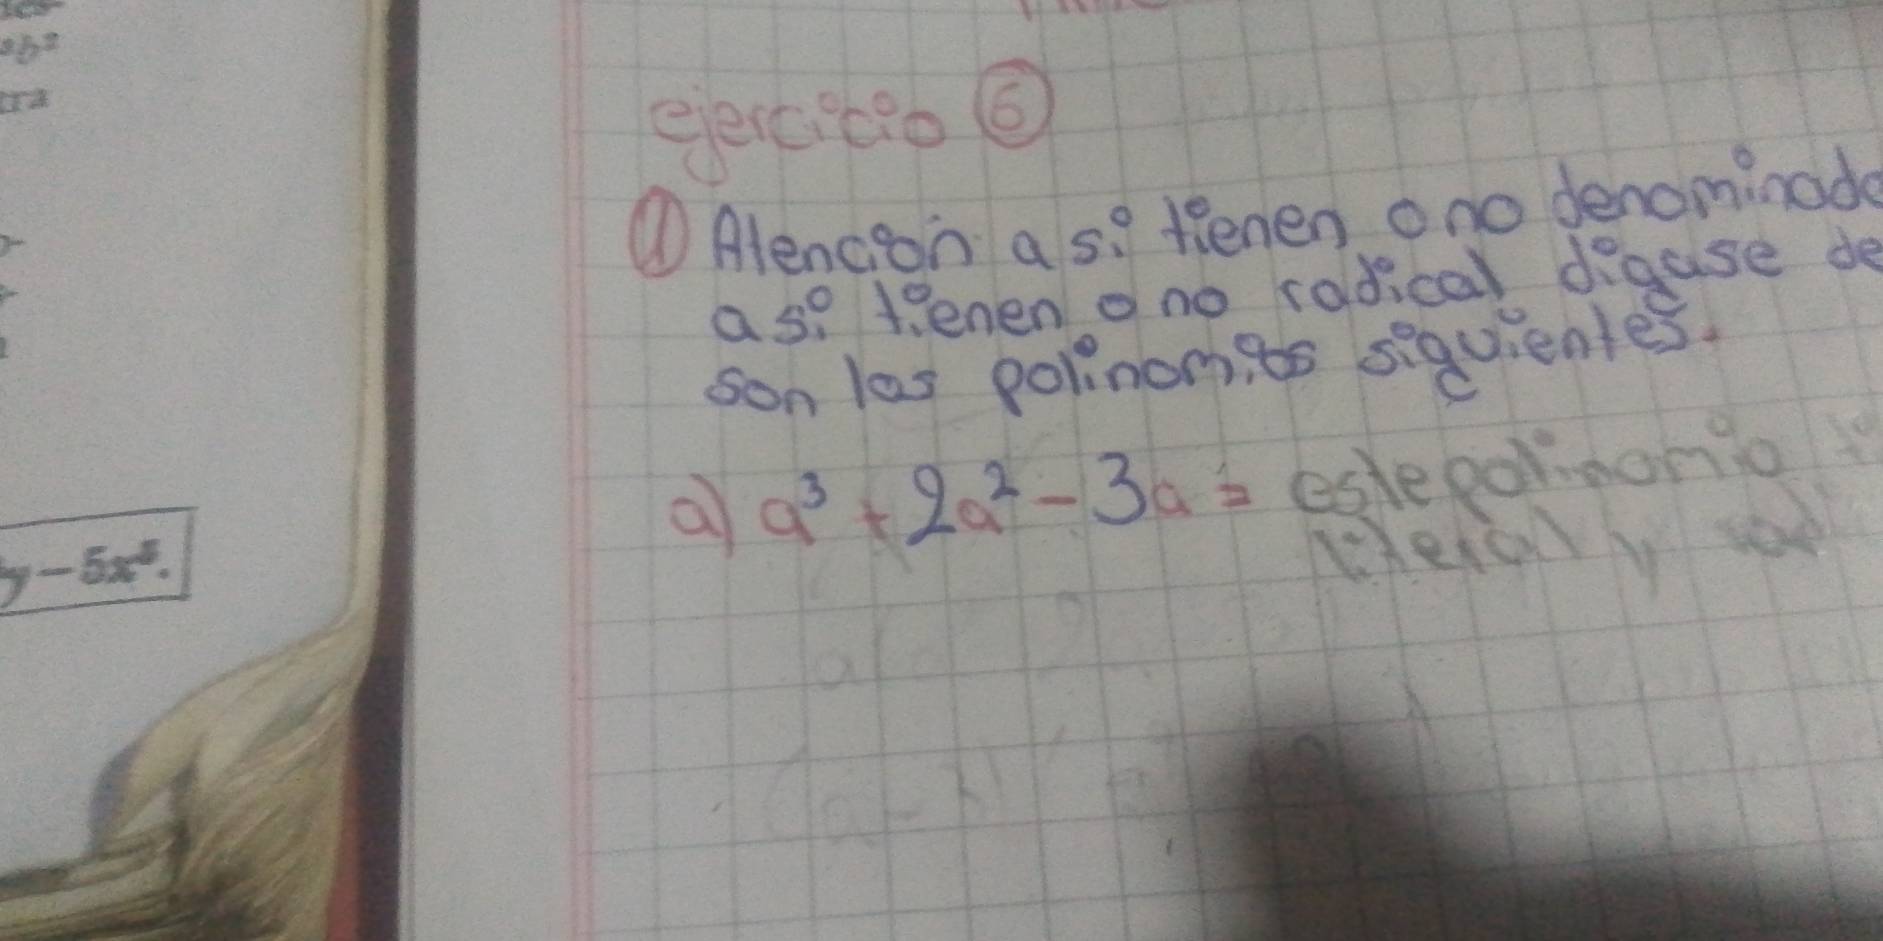 ab²
tra
y-5x⁵.
ejercicio ⑥
① Atención a si tienen o no denominado
a si tienen o no radical digase de
son los polinomios siguientes.
a) a³ + 2a² - 3a = este polinomio
literal y